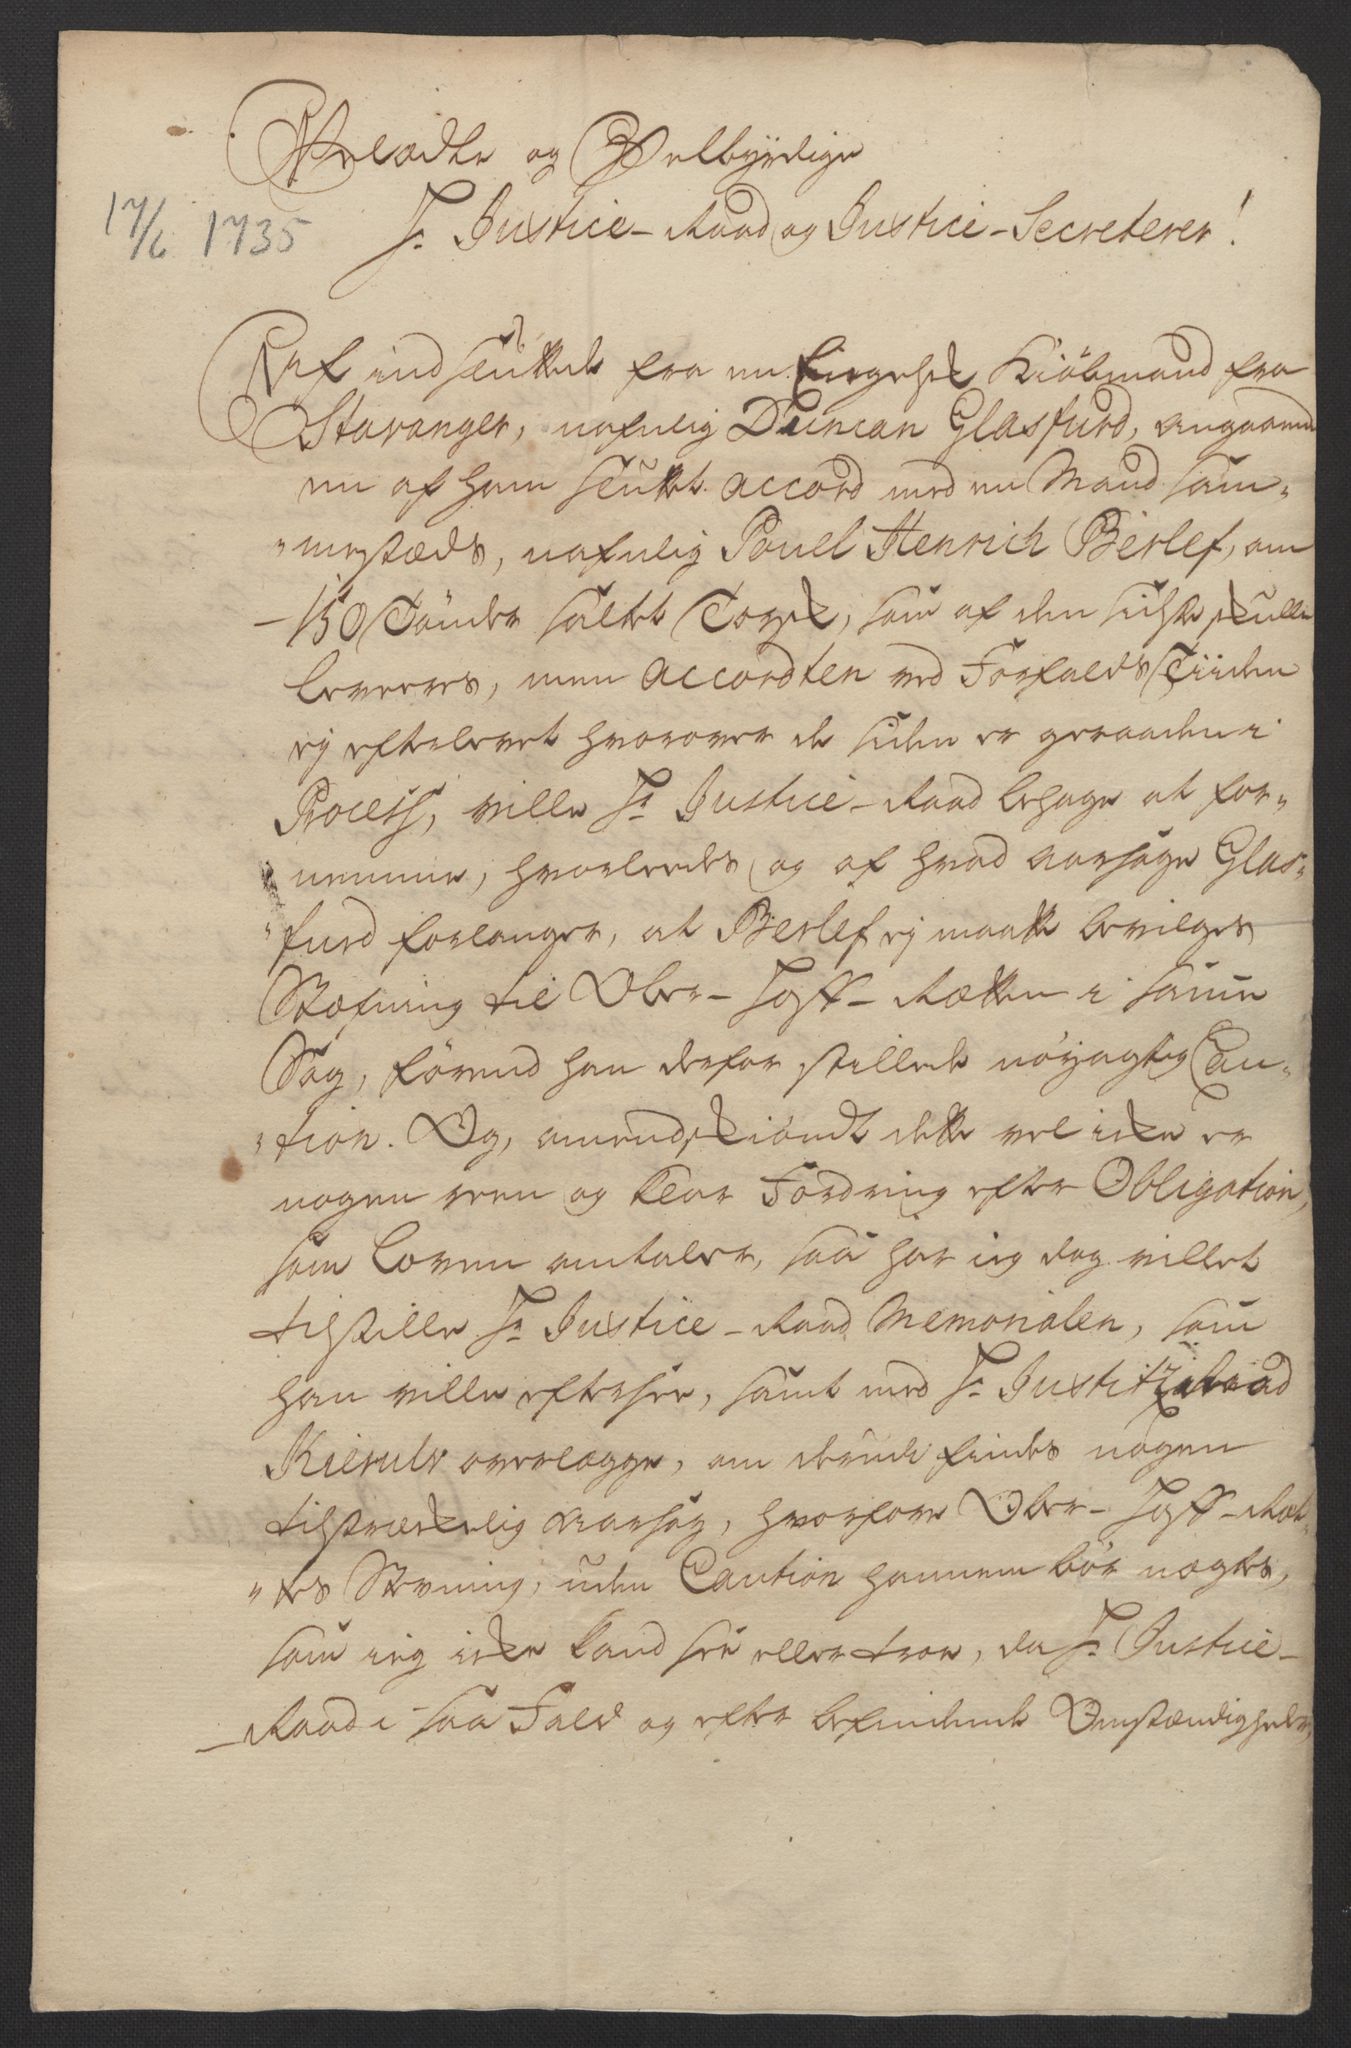 Velædle og Velbyrdige
17/6 1735
Hr. Justice-Raad og Justice-Secreterer!
Af indsluttede fra en Engelsk Kiöbmand fra
Stavanger, nafnlig Duncan Glasfurd, angaaende
en af ham sluttet accord med en Mand sam-
mestæds, nafnlig Povel Henrich Berlef, om
150 Tönder saltet Torsk, som af den sidste skulle
leveres, men accordten ved Forfalds Tiiden
ej efterlevet hvorover de siden er geraaden i
Process, ville Hr. Justice-Raad behage at for-
nemme, hvorledes og af hvad aarsage Glas-
furd forlanger, at Berlef ej maatte bevilges
Stæfning til Ober-Hoff-Rætten i samme
Sag, förend han derfor stillede nöyagtig Cau-
tion. Og, omendskiöndt dette vel icke er
nogen reen og klar Fordring efter Obligation,
som Loven omtaler, saa har ieg dog villet
tilstille Hr. Justice-Raad Memorialen, som
han ville eftersee, samt med Hr. Justitzraad
Kierulv overlægge, om derudi findes nogen
tilstreckelig aarsag, hvorfore Ober-Hoff-Ræt-
tes Stevning, uden Caution hannem bör nægtes,
som ieg icke kand see eller troe, da Hr. Justice-
Raad i saa Fald og efter befindende Omstændigheder,